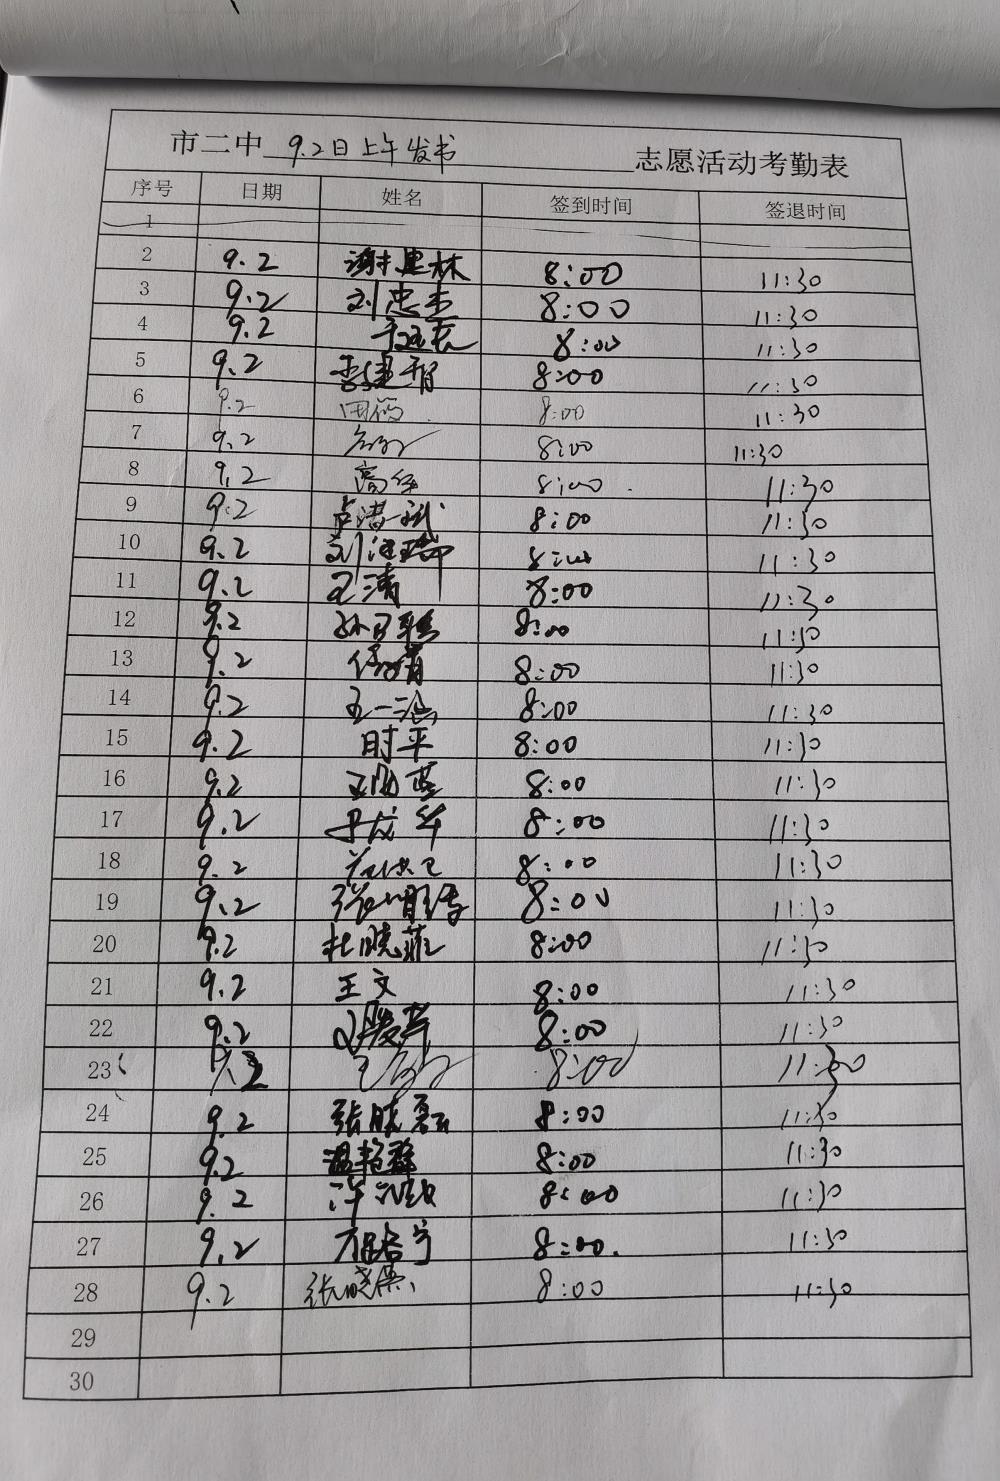 市二中 9.2日上午发书 志愿活动考勤表
序号 日期 姓名 签到时间 签退时间
1
2 9.2 谢建林 8:00 11:30
3 9.2 刘忠杰 8:00 11:30
4 9.2 8:00 11:30
5 9.2 8:00 11:30
6 9.2 8:00 11:30
7 9.2 8:00 11:30
8 9.2 8:00 11:30
9 9.2 8:00 11:30
10 9.2 8:00 11:30
11 9.2 王清 8:00 11:30
12 9.2 8:00 11:30
13 9.2 8:00 11:30
14 9.2 王一涵 8:00 11:30
15 9.2 时平 8:00 11:30
16 9.2 8:00 11:30
17 9.2 8:00 11:30
18 9.2 8:00 11:30
19 9.2 8:00 11:30
20 9.2 杜晓菲 8:00 11:30
21 9.2 王文 8:00 11:30
22 9.2 8:00 11:30
23 9.2 8:00 11:30
24 9.2 张晓磊 8:00 11:30
25 9.2 温艳群 8:00 11:30
26 9.2 8:00 11:30
27 9.2 8:00 11:30
28 9.2 8:00 11:30
29
30